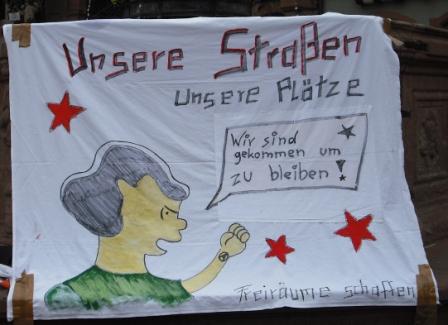 Unsere Straßen
Unsere Plätze
Wir sind
gekommen um
zu bleiben!
Freiräume schaffen